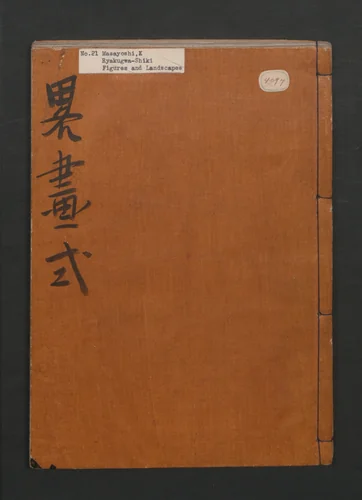 No.21 Masayoshi,K
Ryakugwa-Shiki
Figures and Landscapes
畧畫式